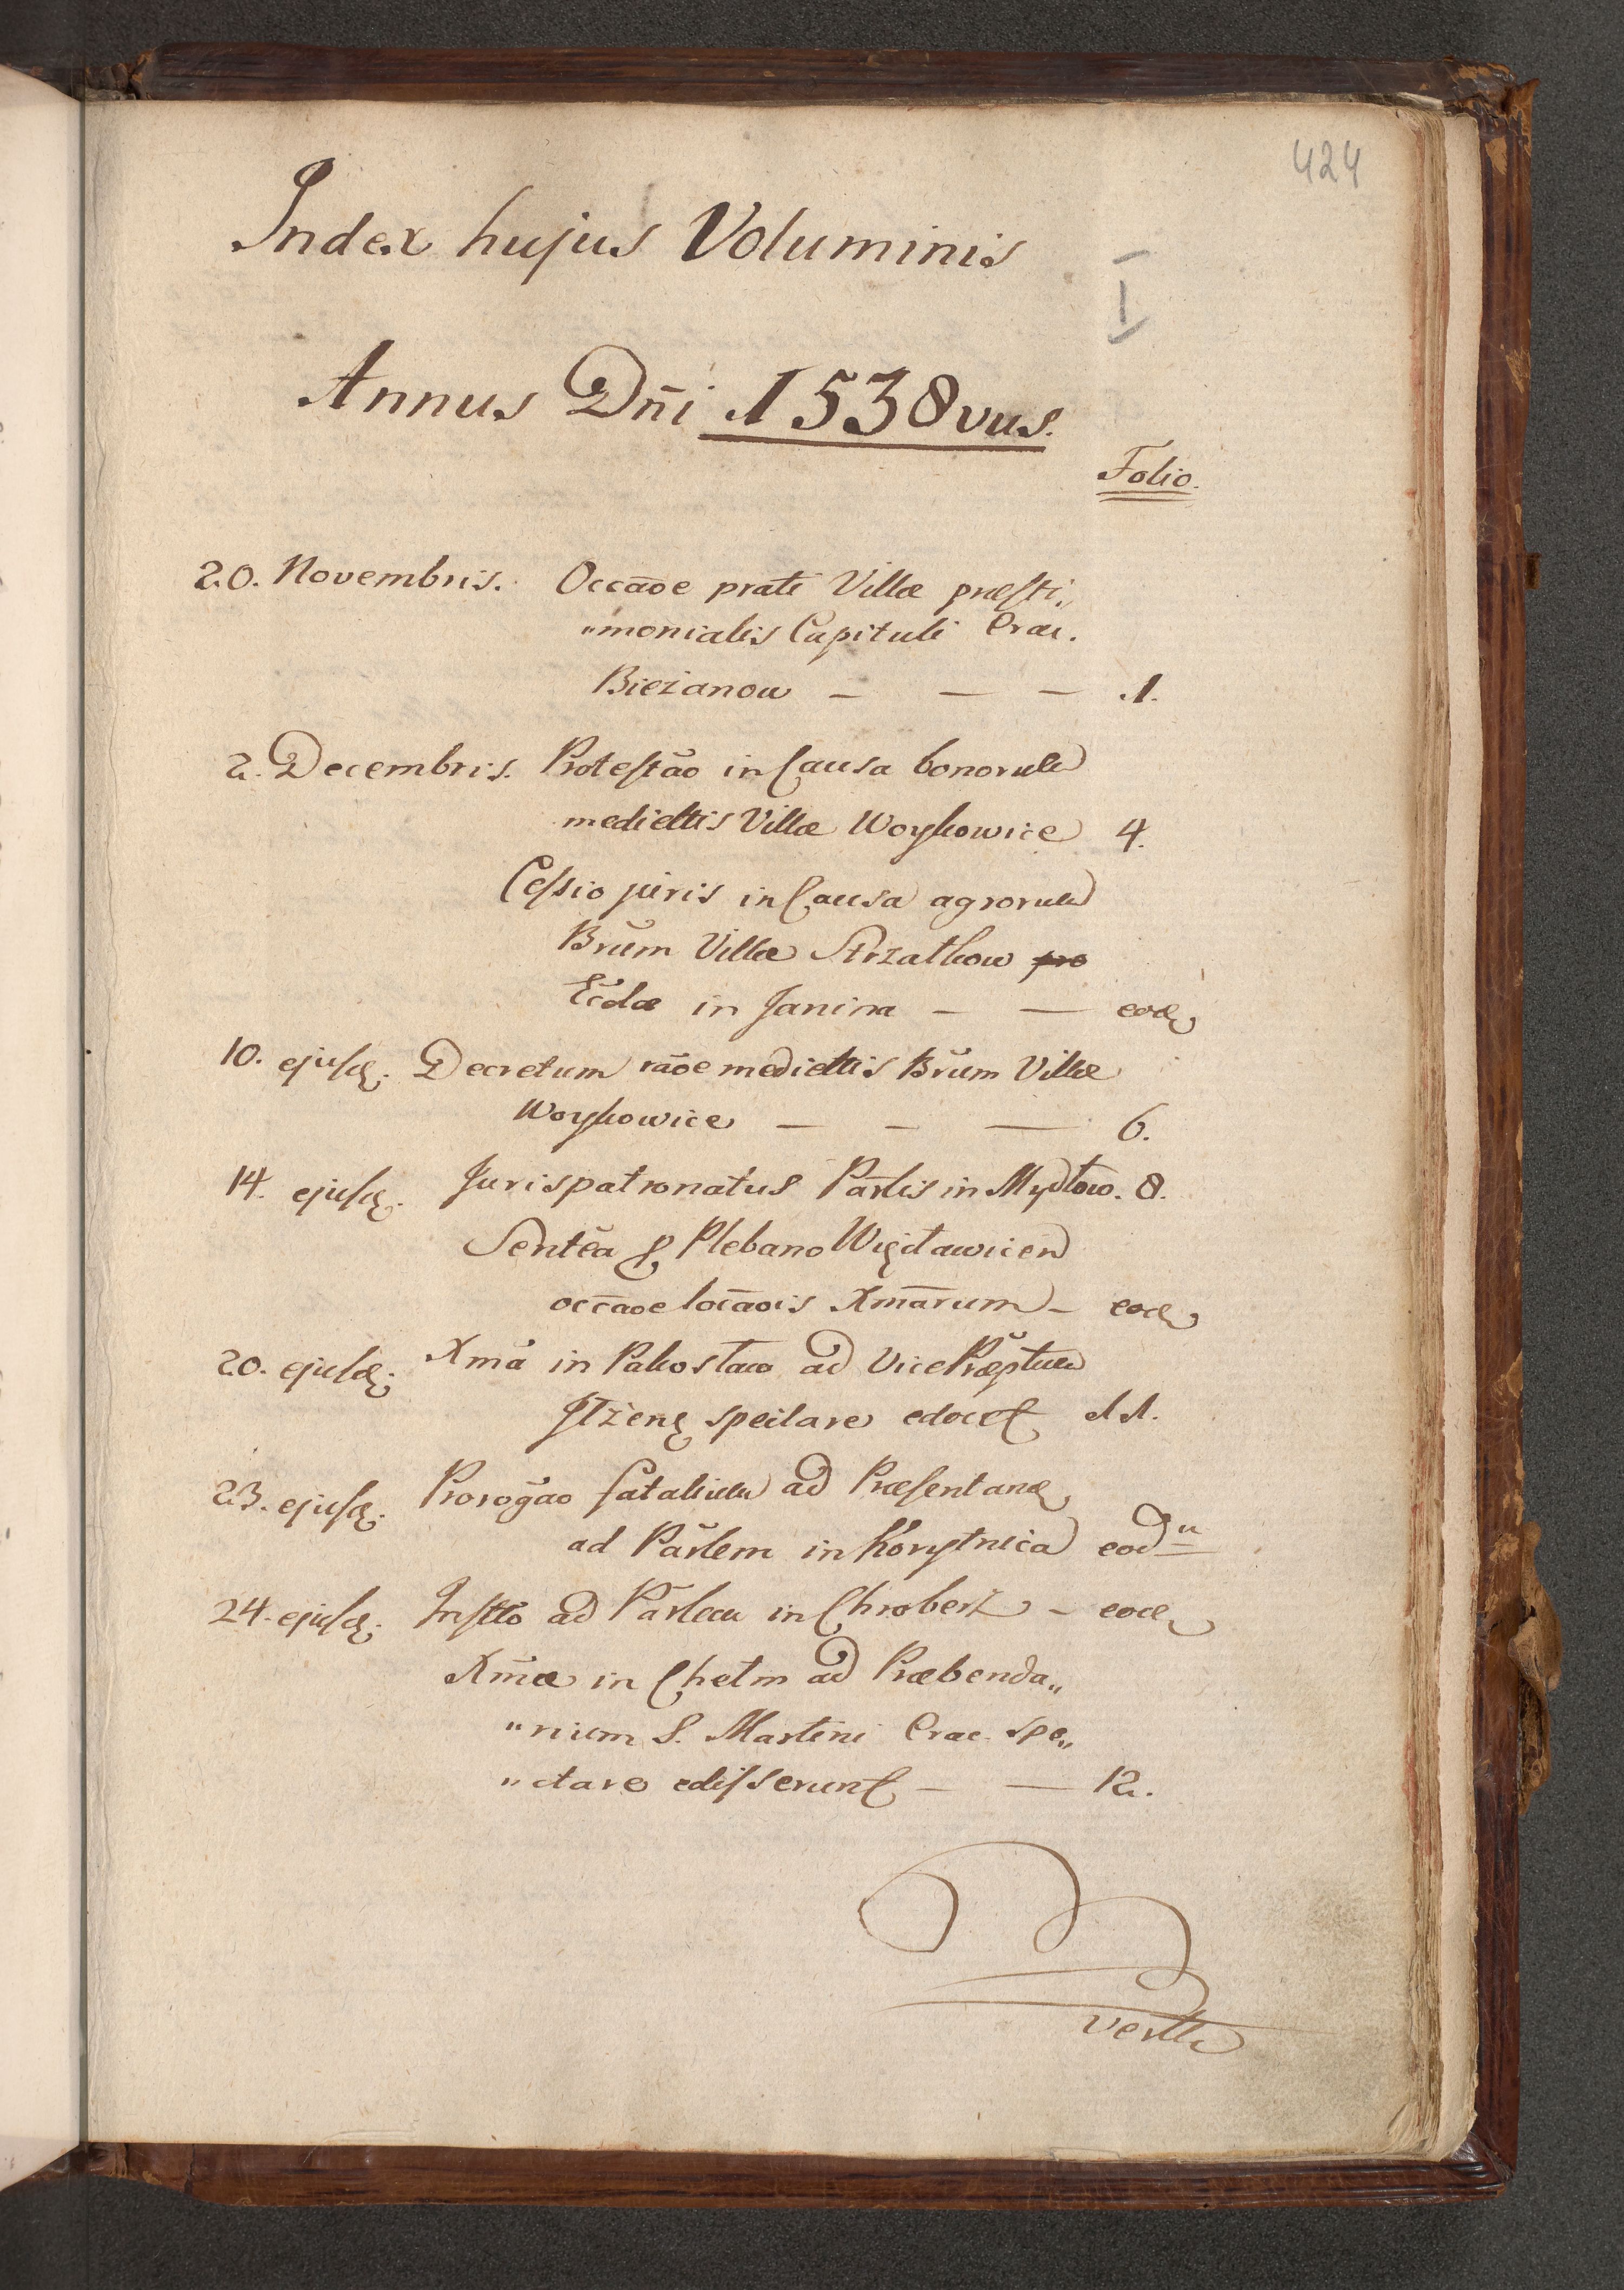 424
Index hujus Voluminis
I
Annus Dn̄i 1538vus.
Folio.
20. Novembris. Occāoe prati Villæ præsti„
„monialis Capituli Crac.
Bieżanow — — — 1.
2. Decembris. Protestāo in Causa bonorum
mediettis Villæ Woykowice 4.
Cessio juris in Causa agrorum
Brūm Villæ Strzałkow pro
Ecclæ in Janina — — eod
10. ejusd. Decretum rāoe mediettis Brūm Villæ
Woykowice — — — 6.
14. ejusd. Jurispatronatus Parlis in Mydłow. 8.
Sentēa p Plebano Więcławicen
occāoe locāois Xmārum — eod
20. ejusd. Xmā in Pakosław ad Vice Præptum
Ilżeng spectare edocet 11.
23. ejusd. Prorogāo fatalium ad Præsentand
ad Parlem in Korytnica eod
24. ejusd. Insttō ad Parlem in Chroberz — eod
Xmæ in Chełm ad Præbenda„
„rium S. Martini Crac. spe„
„ctare edisserunt — — 12.
verte